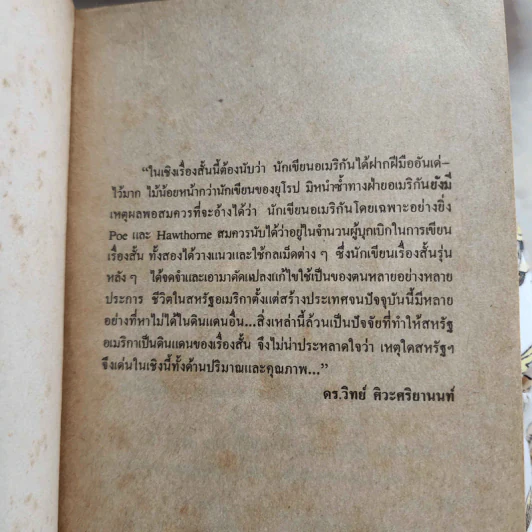 “ในเชิงเรื่องสั้นนี้ต้องนับว่า นักเขียนอเมริกันได้ฝากฝีมืออันเด่-
ไว้มาก ไม่น้อยหน้ากว่านักเขียนของยุโรป มิหนำซ้ำทางฝ่ายอเมริกันยังมี
เหตุผลพอสมควรที่จะอ้างได้ว่า นักเขียนอเมริกันโดยเฉพาะอย่างยิ่ง
Poe และ Hawthorne สมควรนับได้ว่าอยู่ในจำนวนผู้บุกเบิกในการเขียน
เรื่องสั้น ทั้งสองได้วางแนวและใช้กลเม็ดต่าง ๆ ซึ่งนักเขียนเรื่องสั้นรุ่น
หลัง ๆ ได้จดจำและเอามาคัดแปลงแก้ไขใช้เป็นของตนหลายอย่างหลาย
ประการ ชีวิตในสหรัฐอเมริกาตั้งแต่สร้างประเทศจนปัจจุบันนี้มีหลาย
อย่างที่หาไม่ได้ในดินแดนอื่น...สิ่งเหล่านี้ล้วนเป็นปัจจัยที่ทำให้สหรัฐ
อเมริกาเป็นดินแดนของเรื่องสั้น จึงไม่น่าประหลาดใจว่า เหตุใดสหรัฐฯ
จึงเด่นในเชิงนี้ทั้งด้านปริมาณและคุณภาพ...”
ดร.วิทย์ ศิวะศริยานนท์